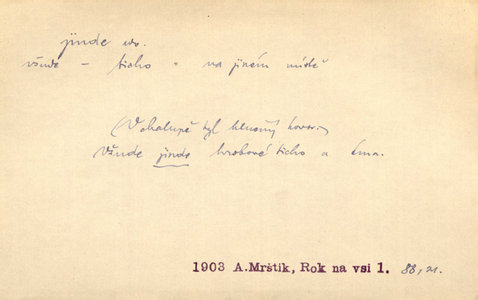 jinde
všude – ticho = na jiném místě
(V chalupě byl hlučný hovor.)
Všude jinde hrobové ticho a tma.
1903 A.Mrštík, Rok na vsi 1. 88, 21.